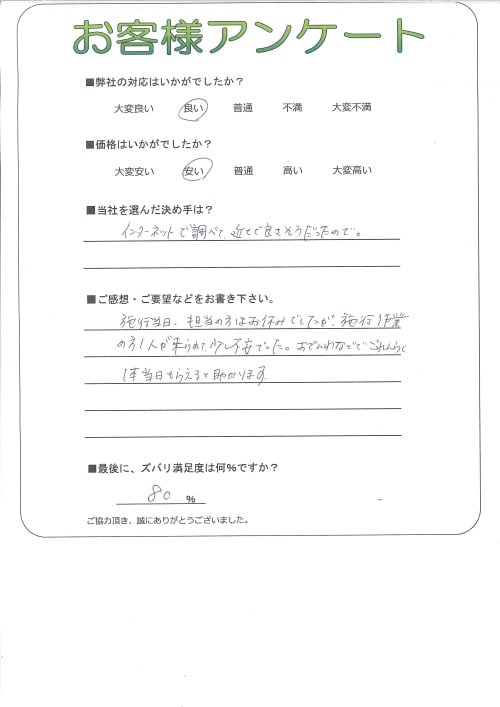 お客様アンケート
■弊社の対応はいかがでしたか?
大変良い 良い 普通 不満 大変不満
■価格はいかがでしたか?
大変安い 安い 普通 高い 大変高い
■当社を選んだ決め手は?
インターネットで調べて、近くで良さそうだったので。
■ご感想・ご要望などをお書き下さい。
施行当日、担当の方はお休みでしたが、施行作業
の方1人が来られて、少し不安でした。おでんわなどで ごれんらく
当日もらえると助かります
■最後に、ズバリ満足度は何%ですか?
80 %
ご協力頂き、誠にありがとうございました。